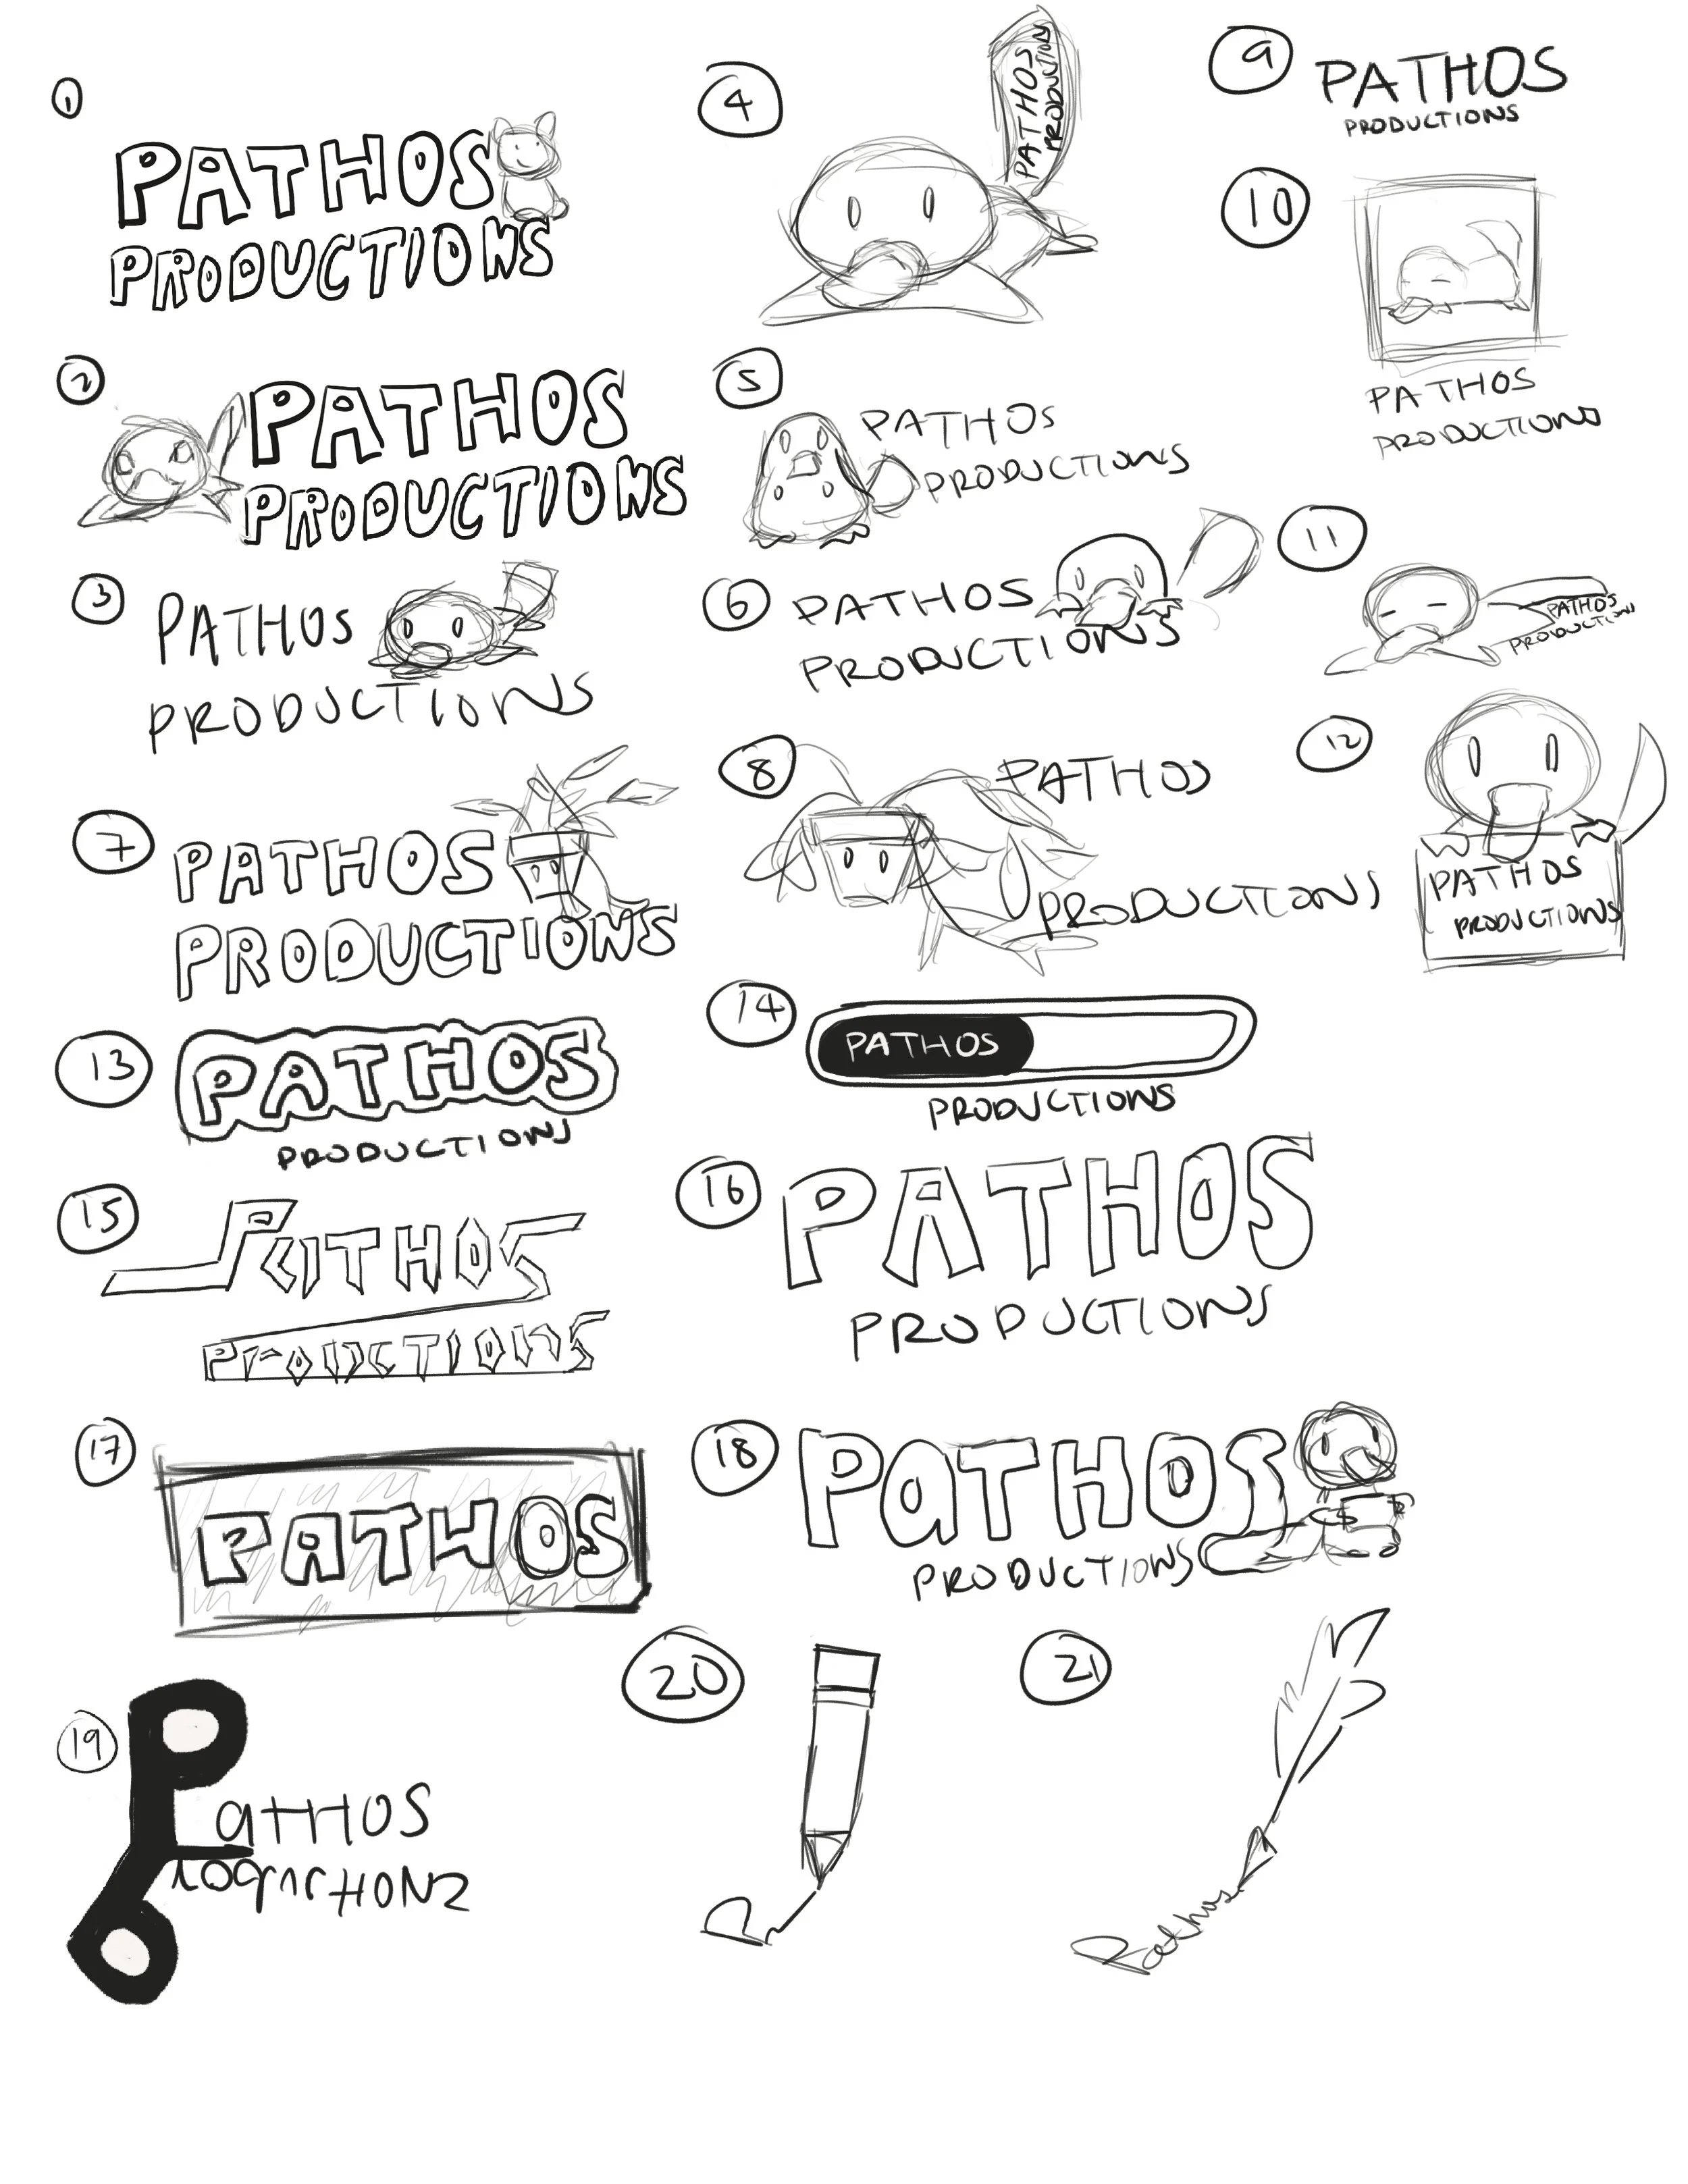 1
PATHOS
PRODUCTIONS
2
PATHOS
PRODUCTIONS
3
PATHOS
PRODUCTIONS
4
PATHOS
PRODUCTIONS
5
PATHOS
PRODUCTIONS
6
PATHOS
PRODUCTIONS
7
PATHOS
PRODUCTIONS
8
PATHOS
PRODUCTIONS
9
PATHOS
PRODUCTIONS
10
PATHOS
PRODUCTIONS
11
PATHOS
PRODUCTIONS
12
PATHOS
PRODUCTIONS
13
PATHOS
PRODUCTIONS
14
PATHOS
PRODUCTIONS
15
PaTHOS
PrODUCTIONS
16
PATHOS
PRODUCTIONS
17
PATHOS
18
PaTHOS
PRODUCTIONS
19
PaTHOS
20
P
21
Pathos